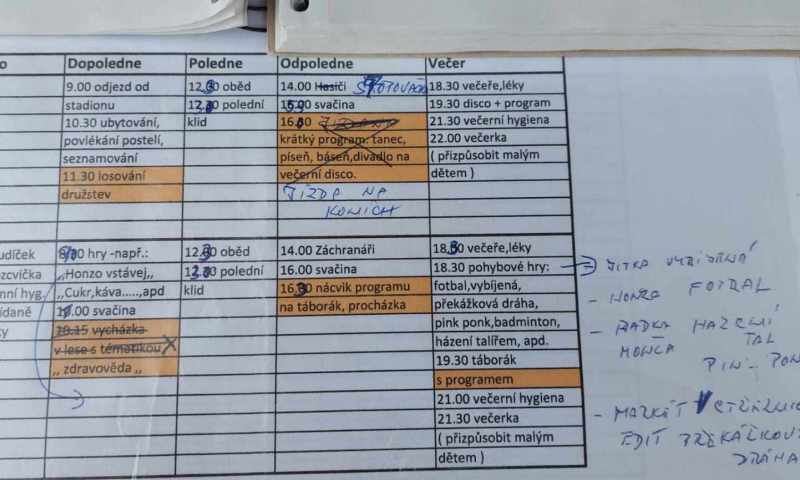 Dopoledne Poledne Odpoledne Večer
9.00 odjezd od
stadionu
10.30 ubytování,
povlékání postelí,
seznamování
11.30 losování
družstev
oběd
polední
klid
14.00 Hasiči
svačina
krátký program: tanec,
píseň, báseň,divadlo na
večerní disco.
JÍZDA NA
KONÍCH
18.30 večeře,léky
19.30 disco + program
21.30 večerní hygiena
22.00 večerka
( přizpůsobit malým
dětem )
udíček
ozcvička
nní hyg
ídaně
ky
hry -např.:
,,Honzo vstávej,,
,,Cukr,káva.....,apd
svačina
10.15 vycházka
v lese s tématikou
,, zdravověda ,,
oběd
polední
klid
14.00 Záchranáři
16.00 svačina
nácvik programu
na táborák, procházka
večeře,léky
18.30 pohybové hry:
fotbal,vybíjená,
překážková dráha,
pink ponk,badminton,
házení talířem, apd.
19.30 táborák
s programem
21.00 večerní hygiena
21.30 večerka
( přizpůsobit malým
dětem )
→ JITKA VYBÍJENÁ
- HONZA FOTBAL
- RADKA HAZENÍ
MONČA TAL
PIN - PON
- MARKÉT
EDIT PŘEKÁŽKOV
DRÁHA